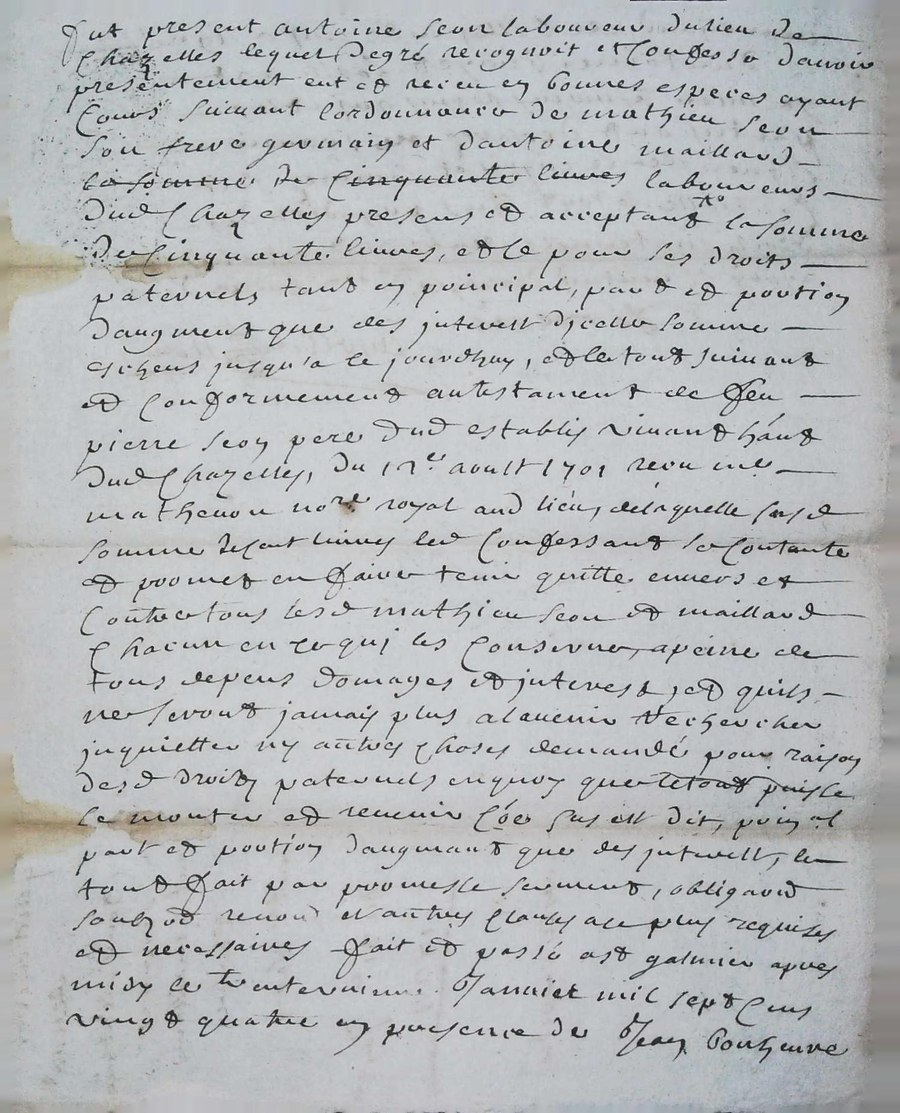 fut present antoine seon laboureur du lieu de
Chazelles lequel degré recognoit et Confesse d'avoir
presentement eut et receu en bonnes especes ayant
Cours suivant lordonnance de mathieu seon
son frere germain et dantoine maillard
la somme de Cinquante livres laboureurs
dud Chazelles presens et acceptant la somme
de Cinquante livres, et le pour ses droits
paternels tant en principal, part et portion
daugment que des interest dicelle somme
escheus jusqu'a ce jourdhuy, et le tout suivant
et Conformement au testament de feu
pierre seon pere dud establis vivant hánt
dud Chazelles, du 12e aoult 1701 receu me
mathevon nore royal aud lieu, de laquelle susd
somme de livres led Confessant se Contante
et promet en faire tenir quitte envers et
Contre tous lesd mathieu seon et maillard
Chacun en ce qui les Conserne, a peine de
tous depens domages et interest, et quils
ne seront jamais plus a ladvenir Rechercher
inquietter ny autres Choses demandé pour raison
desd droits paternels en quoy que le tout puisse
le monter et revenir Cõe sus est dit, prinal
part et portion daugmant que des interest, le
tout fait par promesse serment, obligaõn
soubzõn renonõn et autres Clauses a ce plus requises
et necessaires fait et passé a st galmier apres
midy le trentevieme Janvier mil sept Cens
vingt quatre en presence de Jean bonhevre